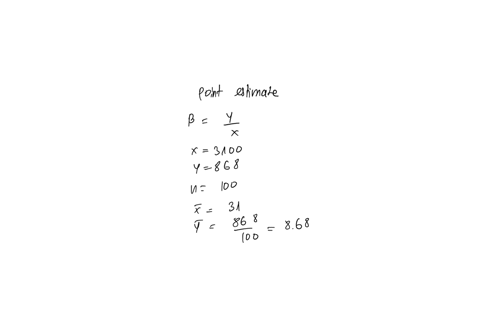 point estimate
β = y/x
x = 3100
y = 868
n = 100
x̄ = 31
ȳ = 868/100 = 8.68